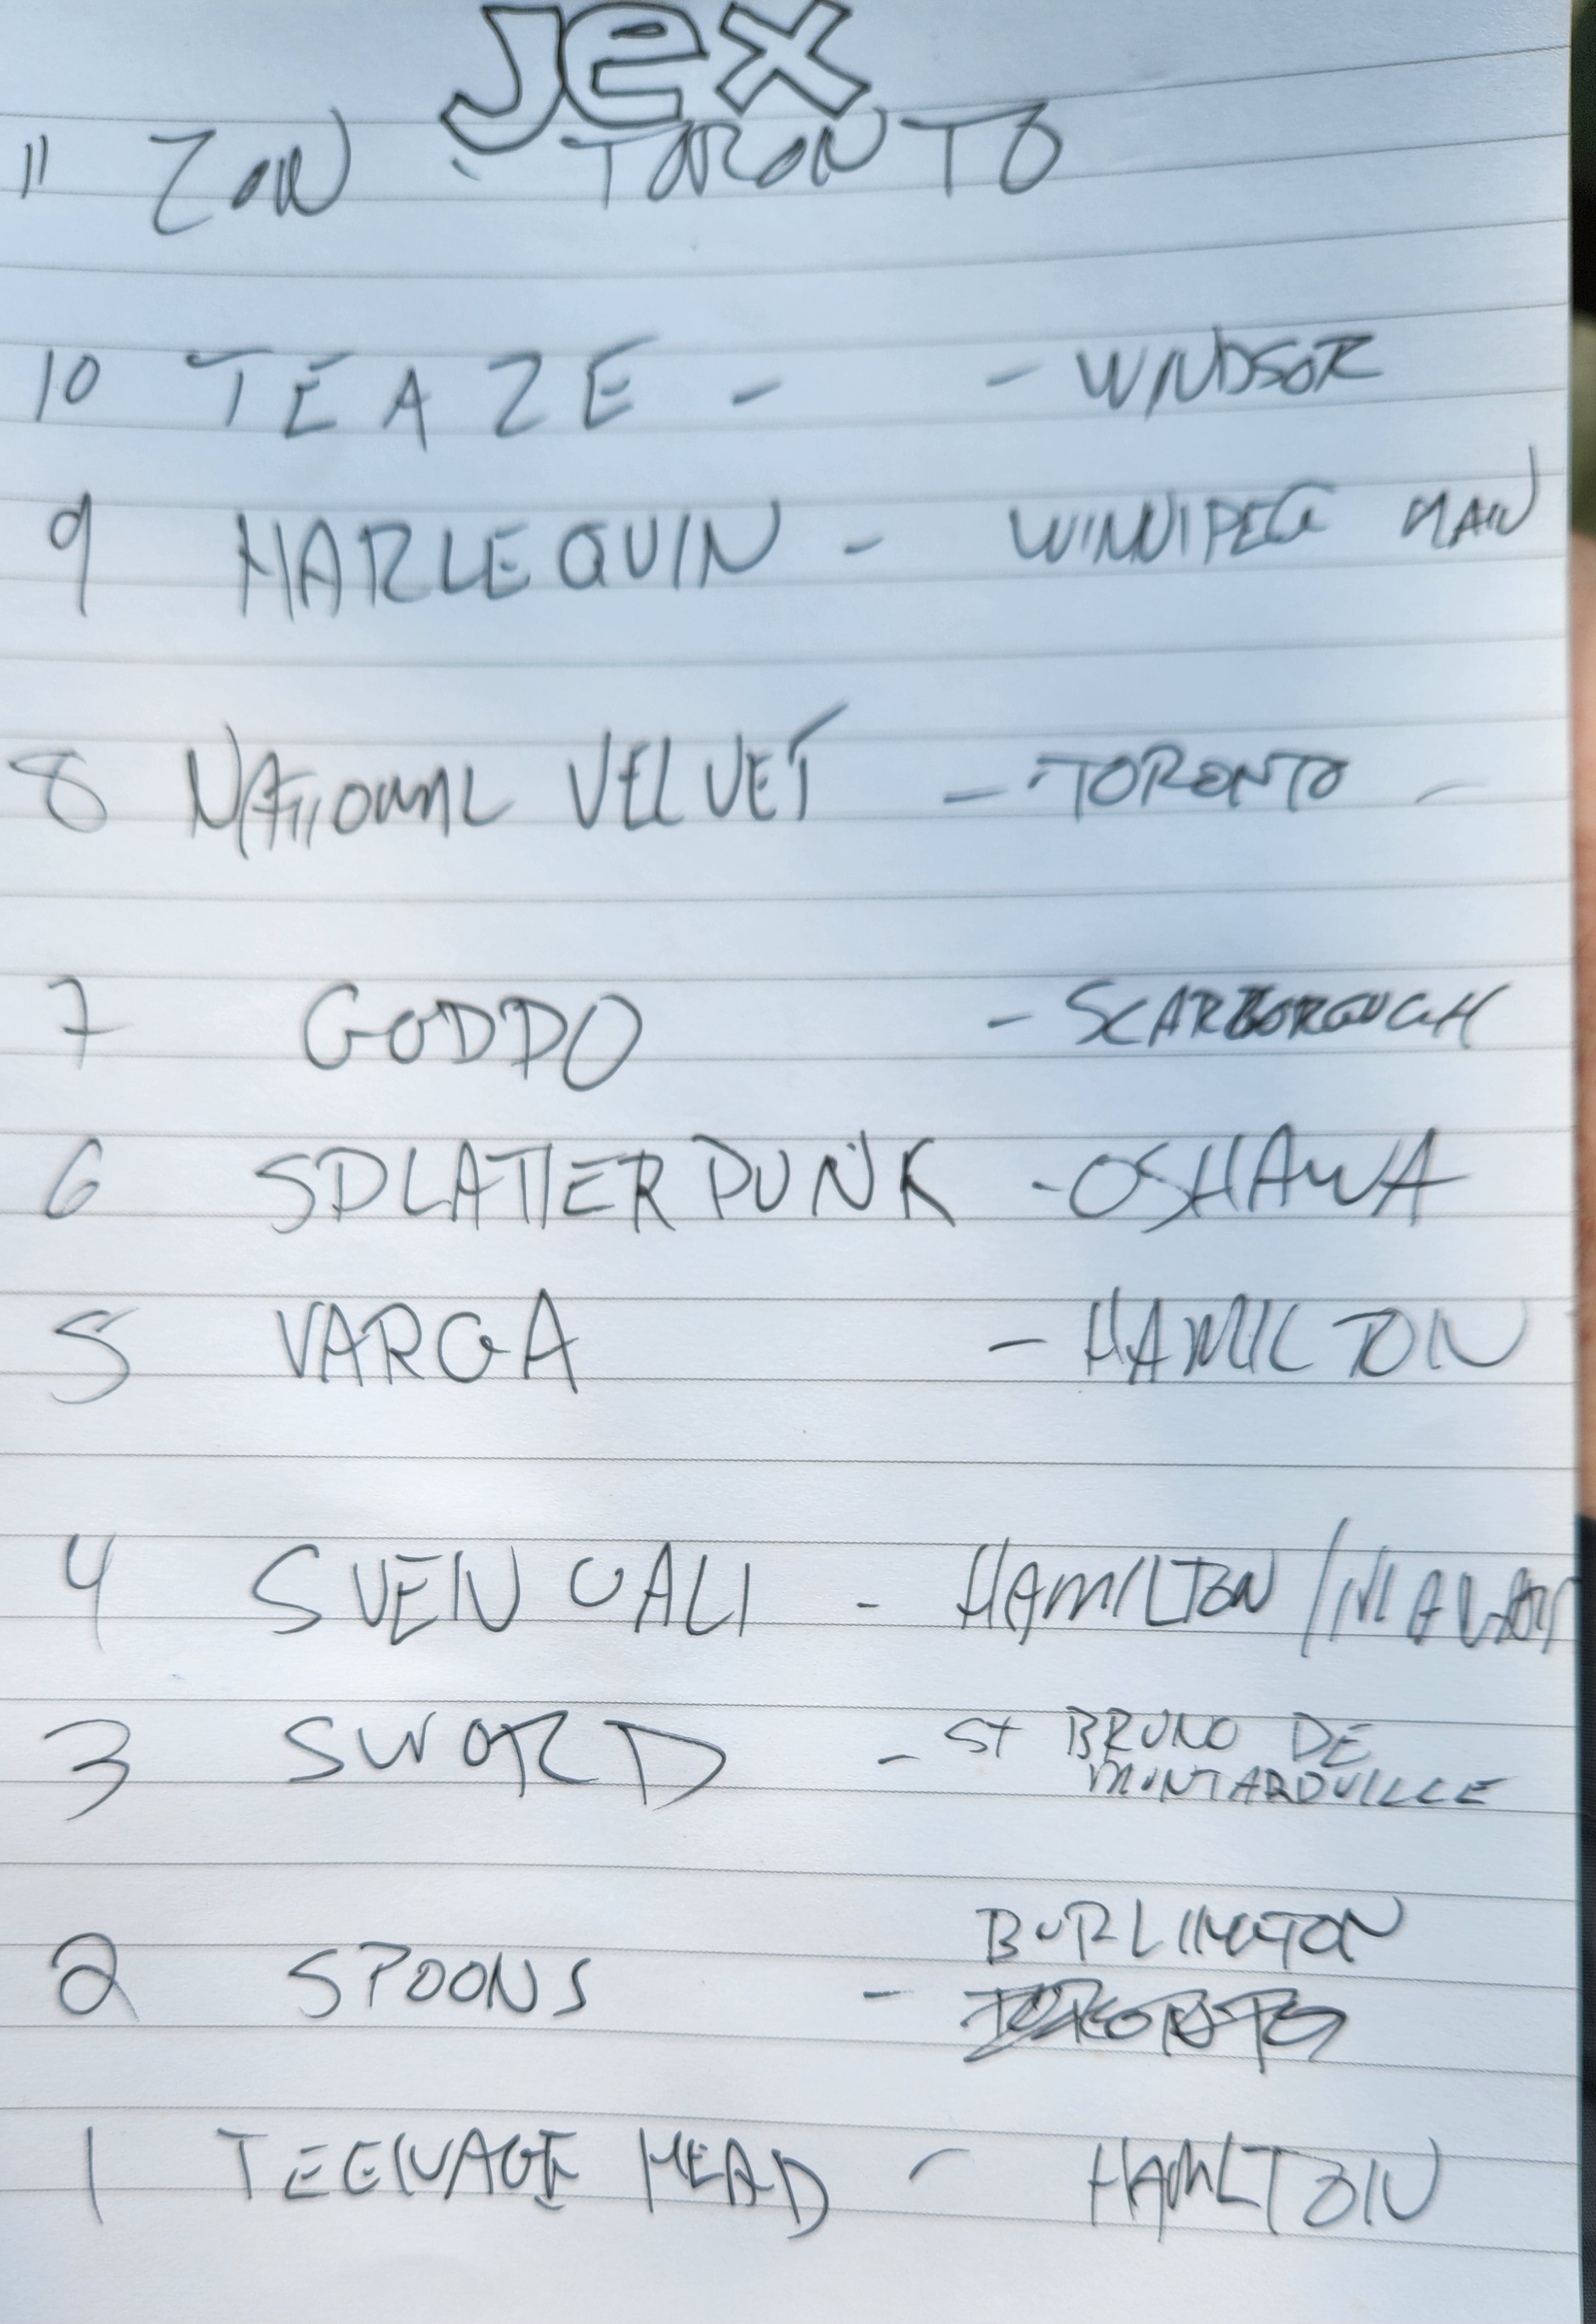 Jex
11 ZON - TORONTO
10 TEAZE - - WINDSOR
9 HARLEQUIN - WINNIPEG MAN
8 NATIONAL VELVET - TORONTO -
7 GODDO - SCARBOROUGH
6 SPLATTERPUNK - OSHAWA
5 VARGA - HAMILTON
4 SVENGALI - HAMILTON /
3 SWORD - ST BRUNO DE
MONTARDVILLE
BURLINGTON
2 SPOONS -
1 TEENAGE HEAD - HAMILTON